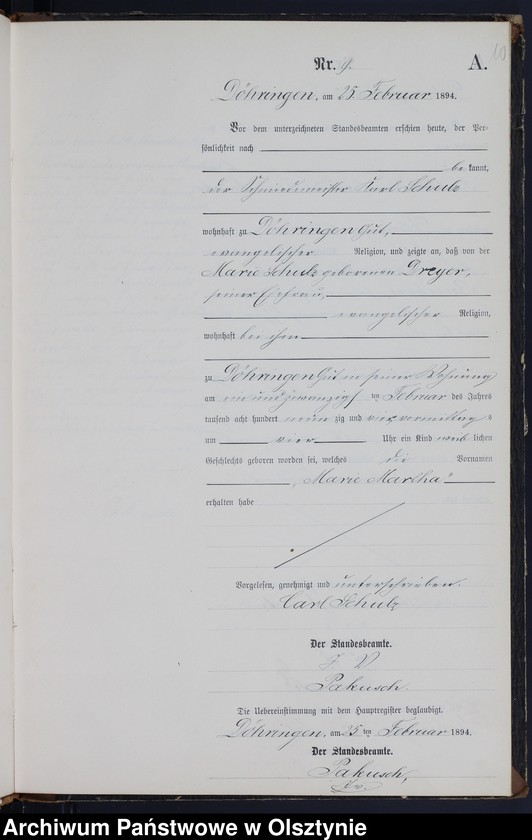 10
Nr. 9. A.
Döhringen, am 25 Februar 1894.
Vor dem unterzeichneten Standesbeamten erschien heute, der Per-
sönlichkeit nach
be kannt,
der Schmiedemeister Karl Schulz
wohnhaft zu Döhringen Gut,
evangelischer Religion, und zeigte an, daß von der
Marie Schulz geborenen Dreyer,
seiner Ehefrau,
evangelischer Religion,
wohnhaft bei ihm
zu Döhringen Gut in seiner Wohnung
am ein und zwanzigsten Februar des Jahres
tausend acht hundert neun zig und vier vormittags
um vier Uhr ein Kind weib lichen
Geschlechts geboren worden sei, welches die Vornamen
„Marie Martha“
erhalten habe
Vorgelesen, genehmigt und unterschrieben.
Carl Schulz
Der Standesbeamte.
J. V.
Pakusch.
Die Uebereinstimmung mit dem Hauptregister beglaubigt.
Döhringen, am 25 ten Februar 1894.
Der Standesbeamte.
Pakusch,
Archiwum Państwowe w Olsztynie